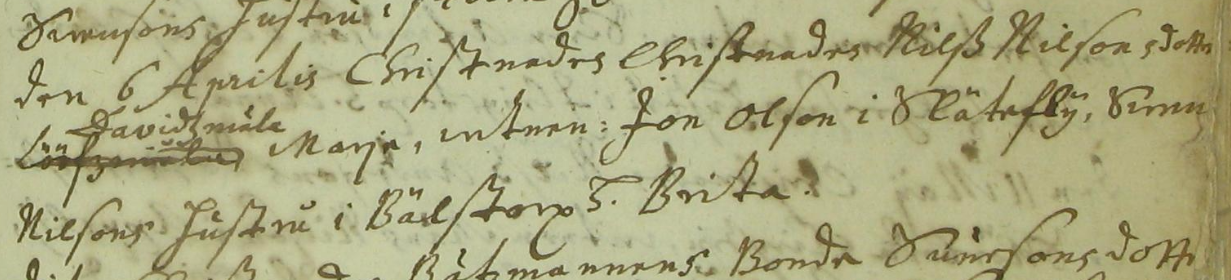 Swensons Hustru i
den 6 Aprilis Christnades Christnades Nilß Nilsons dotter
Davidzmåla
Marja, witnen: Jon Olson i Slätefly, Swen
Nilsons Hustru i Bälstorp H. Brita.
Båtzmannens Bonde Swensons dotter